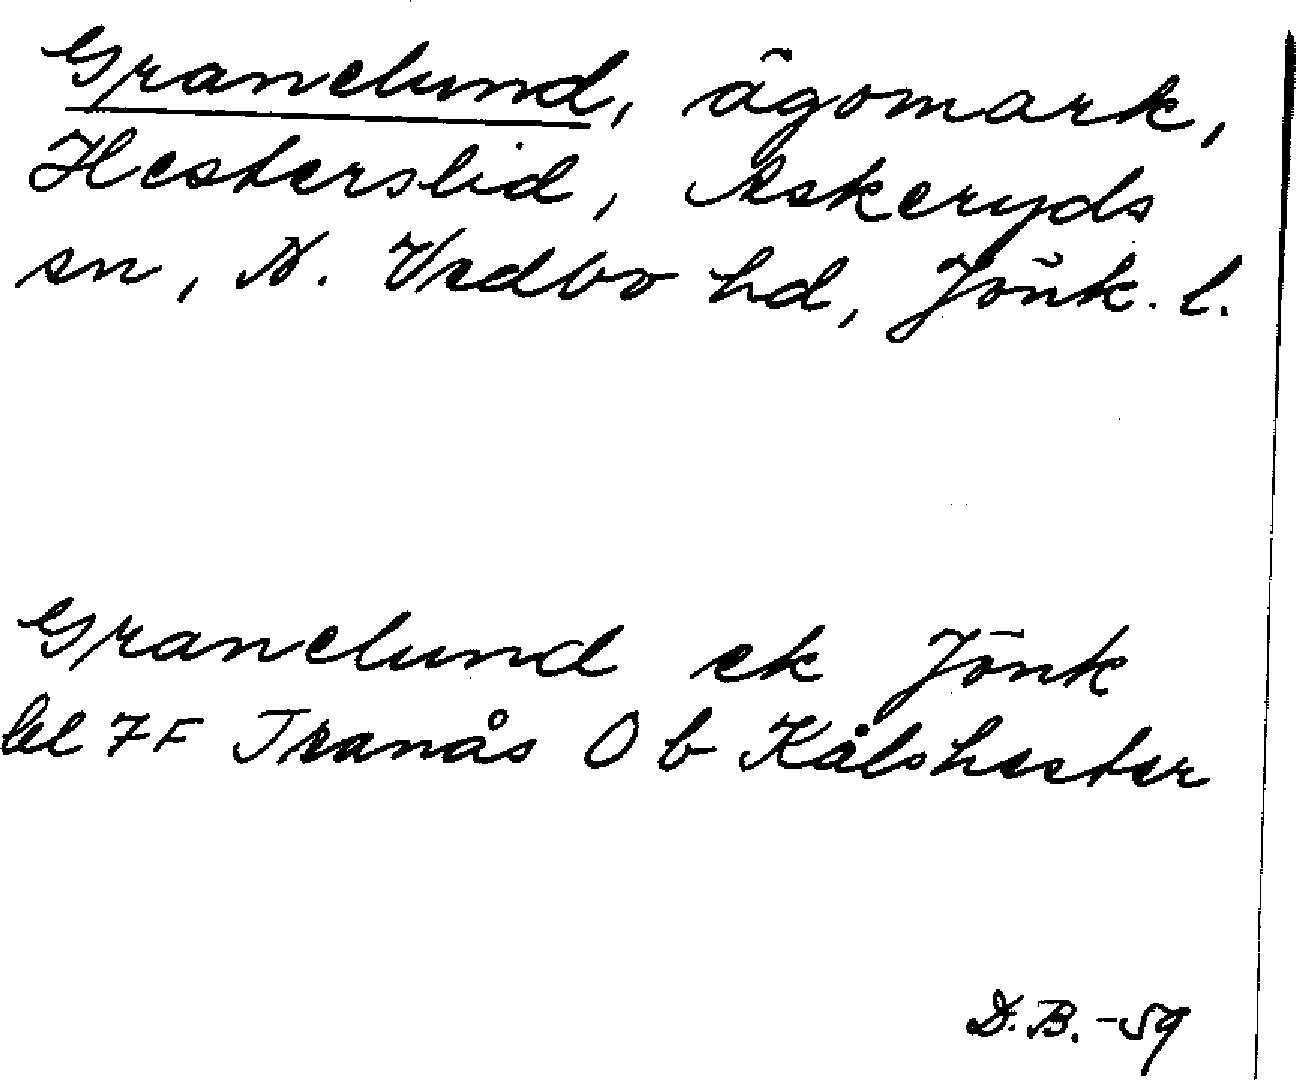 Granelund, ägomark,
Hesterslid, Askeryds
sn, N. Vedbo hd, Jönk. l.
Granelund ek Jönk
bl 7F Tranås O b Kålshester
D.B. -59